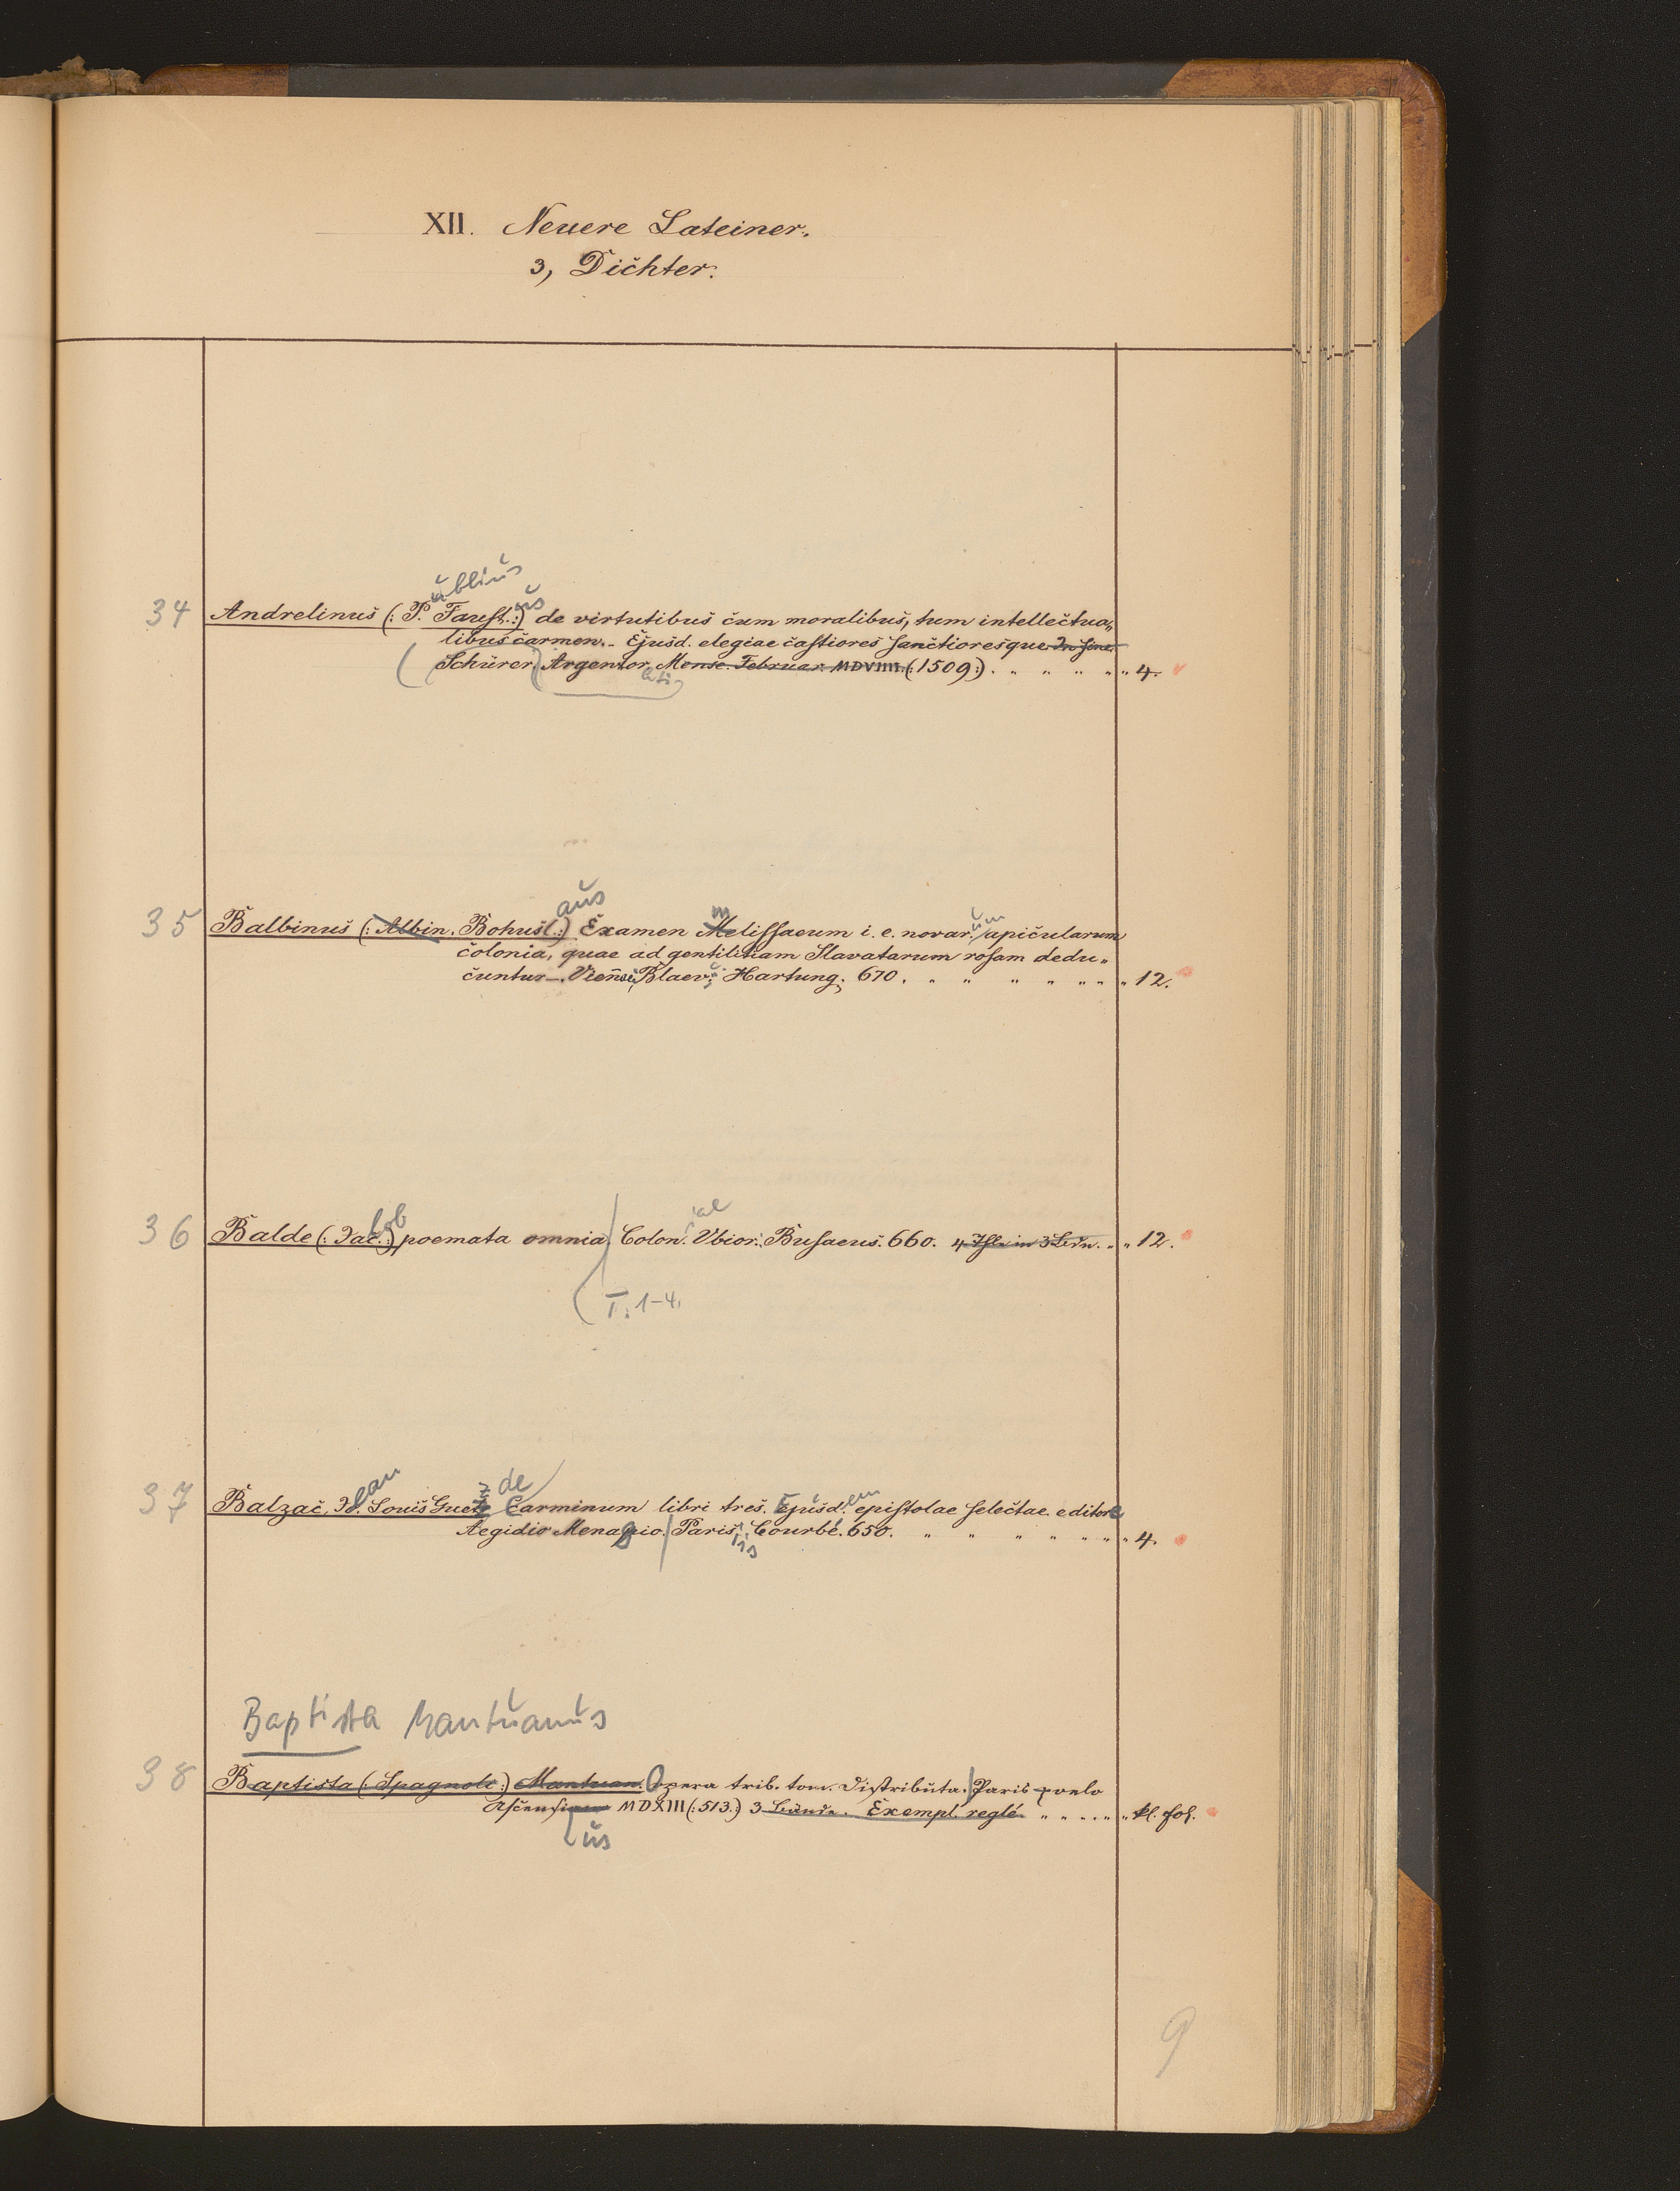 XII. Neuere Lateiner.
3, Dichter.
ublius
us
34 Andrelinus (: P. Faust. :) de virtutibus cum moralibus, tum intellectua„
libus carmen. - Ejusd. elegiae castiores sanctioresque In fine:
(Schürer) Argentor. Mense Februar. MDVIIII. (:1509:) . „ „ „ „ „ 4.
ati
aus
m
um
35 Balbinus (: Albin. Bohusl :) Examen Melissaeum i. e. novar. apicularum
colonia, quae ad gentilitiam Slavatarum rosam dedu„
cuntur -. Viennae, Blaev. Hartung. 670. „ „ „ „ „ „ 12.
kob
iae
36 Balde (: Jac. :) poemata omnia. Colon. Ubior. Busaeus. 660. 4 Thle in 3 Bdn. „ „ 12.
T. 1-4.
ean
de
em
37 Balzac, J. Louis Guez Carminum libri tres. Ejusd. epistolae selectae. editore
Aegidio Menagio. Paris. Courbé. 650. „ „ „ „ „ „ 4.
iis
Baptista Mantuanus
38 Baptista (: Spagnoli :) Mantuan. Opera trib. tom. distributa. Paris. oelo
Ascensiano MDXIII (: 513. :) 3 Bände. Exempl. reglé. „ „ „ „ „ kl. fol.
us
9